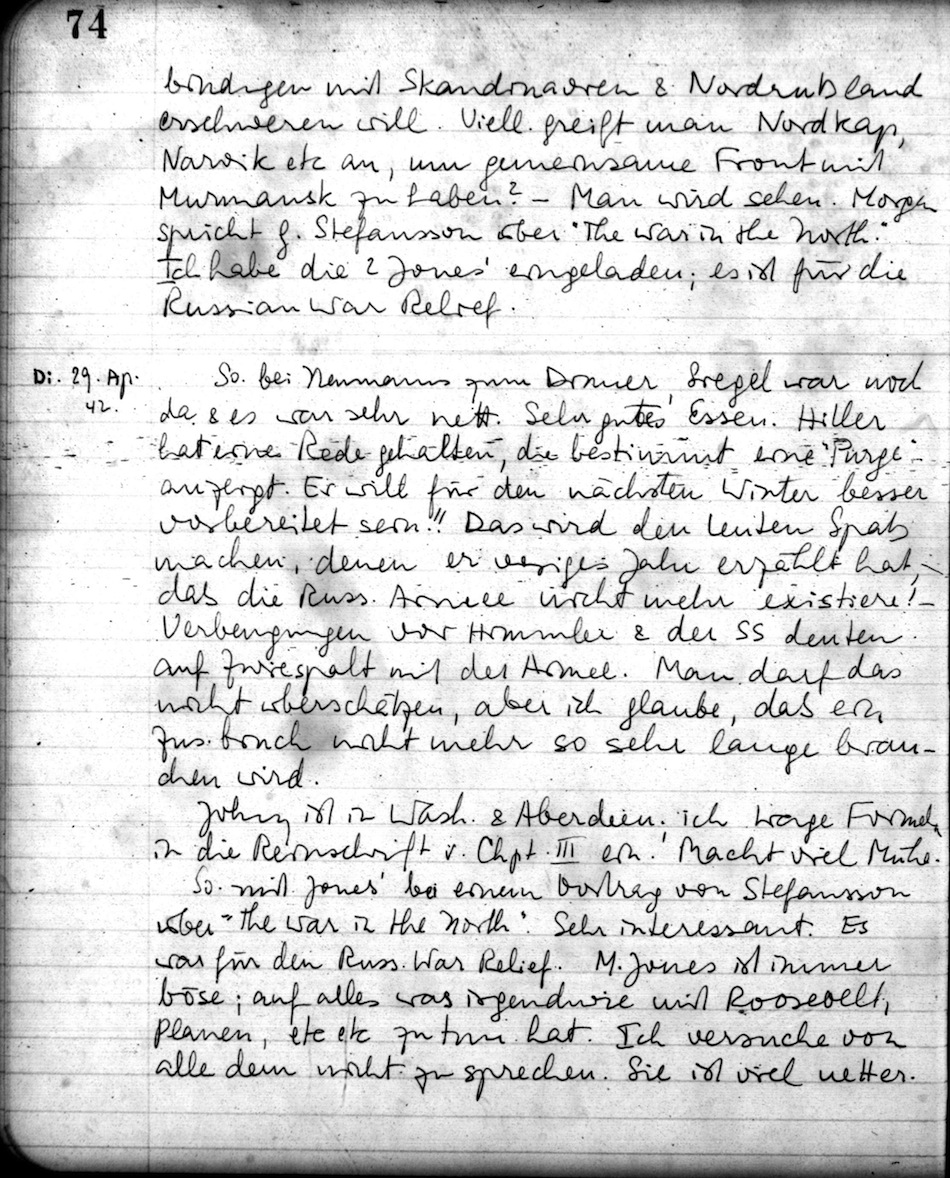 74
bindungen mit Skandinavien & Nordrußland
erschweren will. Viell. greift man Nordkap,
Narvik etc an, um gemeinsame Front mit
Murmansk zu haben? – Man wird sehen. Morgen
spricht Stefansson über "The war in the North."
Ich habe die 2 Jones' eingeladen; es ist für die
Russian War Relief.
Di. 29. Ap. So. bei Neumanns zum Dinner, Siegel war noch
42. da & es war sehr nett. Sehr gutes Essen. Hitler
hat eine Rede gehalten, die bestimmt eine "Purge"
anzeigt. Er will für den nächsten Winter besser
vorbereitet sein!! Das wird den Leuten Spaß
machen, denen er voriges Jahr erzählt hat,
daß die Russ. Armee nicht mehr existiere! –
Verbeugungen vor Himmler & der SS deuten
auf Zwiespalt mit der Armee. Man darf das
nicht überschätzen, aber ich glaube, daß ein
Zus. bruch nicht mehr so sehr lange brau-
chen wird.
Johny ist in Wash. & Aberdeen; ich trage Formeln
in die Reinschrift v. Chpt. III ein. Macht viel Mühe.
So. mit Jones' bei einem Vortrag von Stefansson
über "The War in the North". Sehr interessant. Es
war für den Russ. War Relief. M. Jones ist immer
böse; auf alles was irgendwie mit Roosevelt,
Planen, etc etc zu tun hat. Ich versuche von
alle dem nicht zu sprechen. Sie ist viel netter.